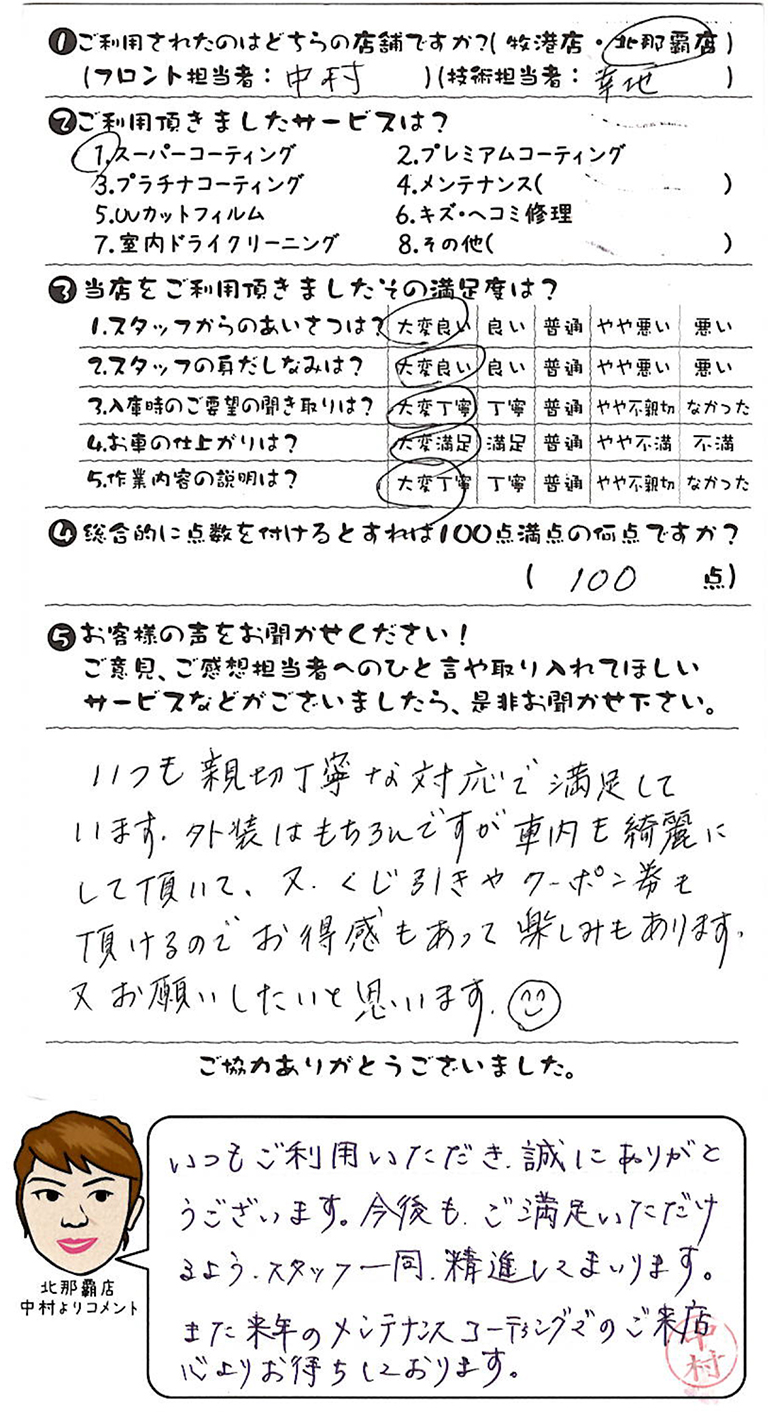 ❶ご利用されたのはどちらの店舗ですか?(牧港店・北那覇店)
(フロント担当者:中村)(技術担当者:幸地)
❷ご利用頂きましたサービスは?
1.スーパーコーティング 2.プレミアムコーティング
3.プラチナコーティング 4.メンテナンス( )
5.UVカットフィルム 6.キズ・ヘコミ修理
7.室内ドライクリーニング 8.その他( )
❸当店をご利用頂きましたその満足度は?
1.スタッフからのあいさつは? 大変良い 良い 普通 やや悪い 悪い
2.スタッフの身だしなみは? 大変良い 良い 普通 やや悪い 悪い
3.入庫時のご要望の聞き取りは? 大変丁寧 丁寧 普通 やや不親切 なかった
4.お車の仕上がりは? 大変満足 満足 普通 やや不満 不満
5.作業内容の説明は? 大変丁寧 丁寧 普通 やや不親切 なかった
❹総合的に点数を付けるとすれば100点満点の何点ですか?
(100 点)
❺お客様の声をお聞かせください!
ご意見、ご感想担当者へのひと言や取り入れてほしい
サービスなどがございましたら、是非お聞かせ下さい。
いつも親切丁寧な対応で満足して
います。外装はもちろんですが車内も綺麗に
して頂いて、又、くじ引きやクーポン券も
頂けるのでお得感もあって楽しみもあります。
又お願いしたいと思います。
ご協力ありがとうございました。
いつもご利用いただき、誠にありがと
うございます。今後も、ご満足いただけ
るよう、スタッフ一同、精進してまいります。
また来年のメンテナンスコーティングでのご来店
心よりお待ちしております。
中村
北那覇店
中村よりコメント